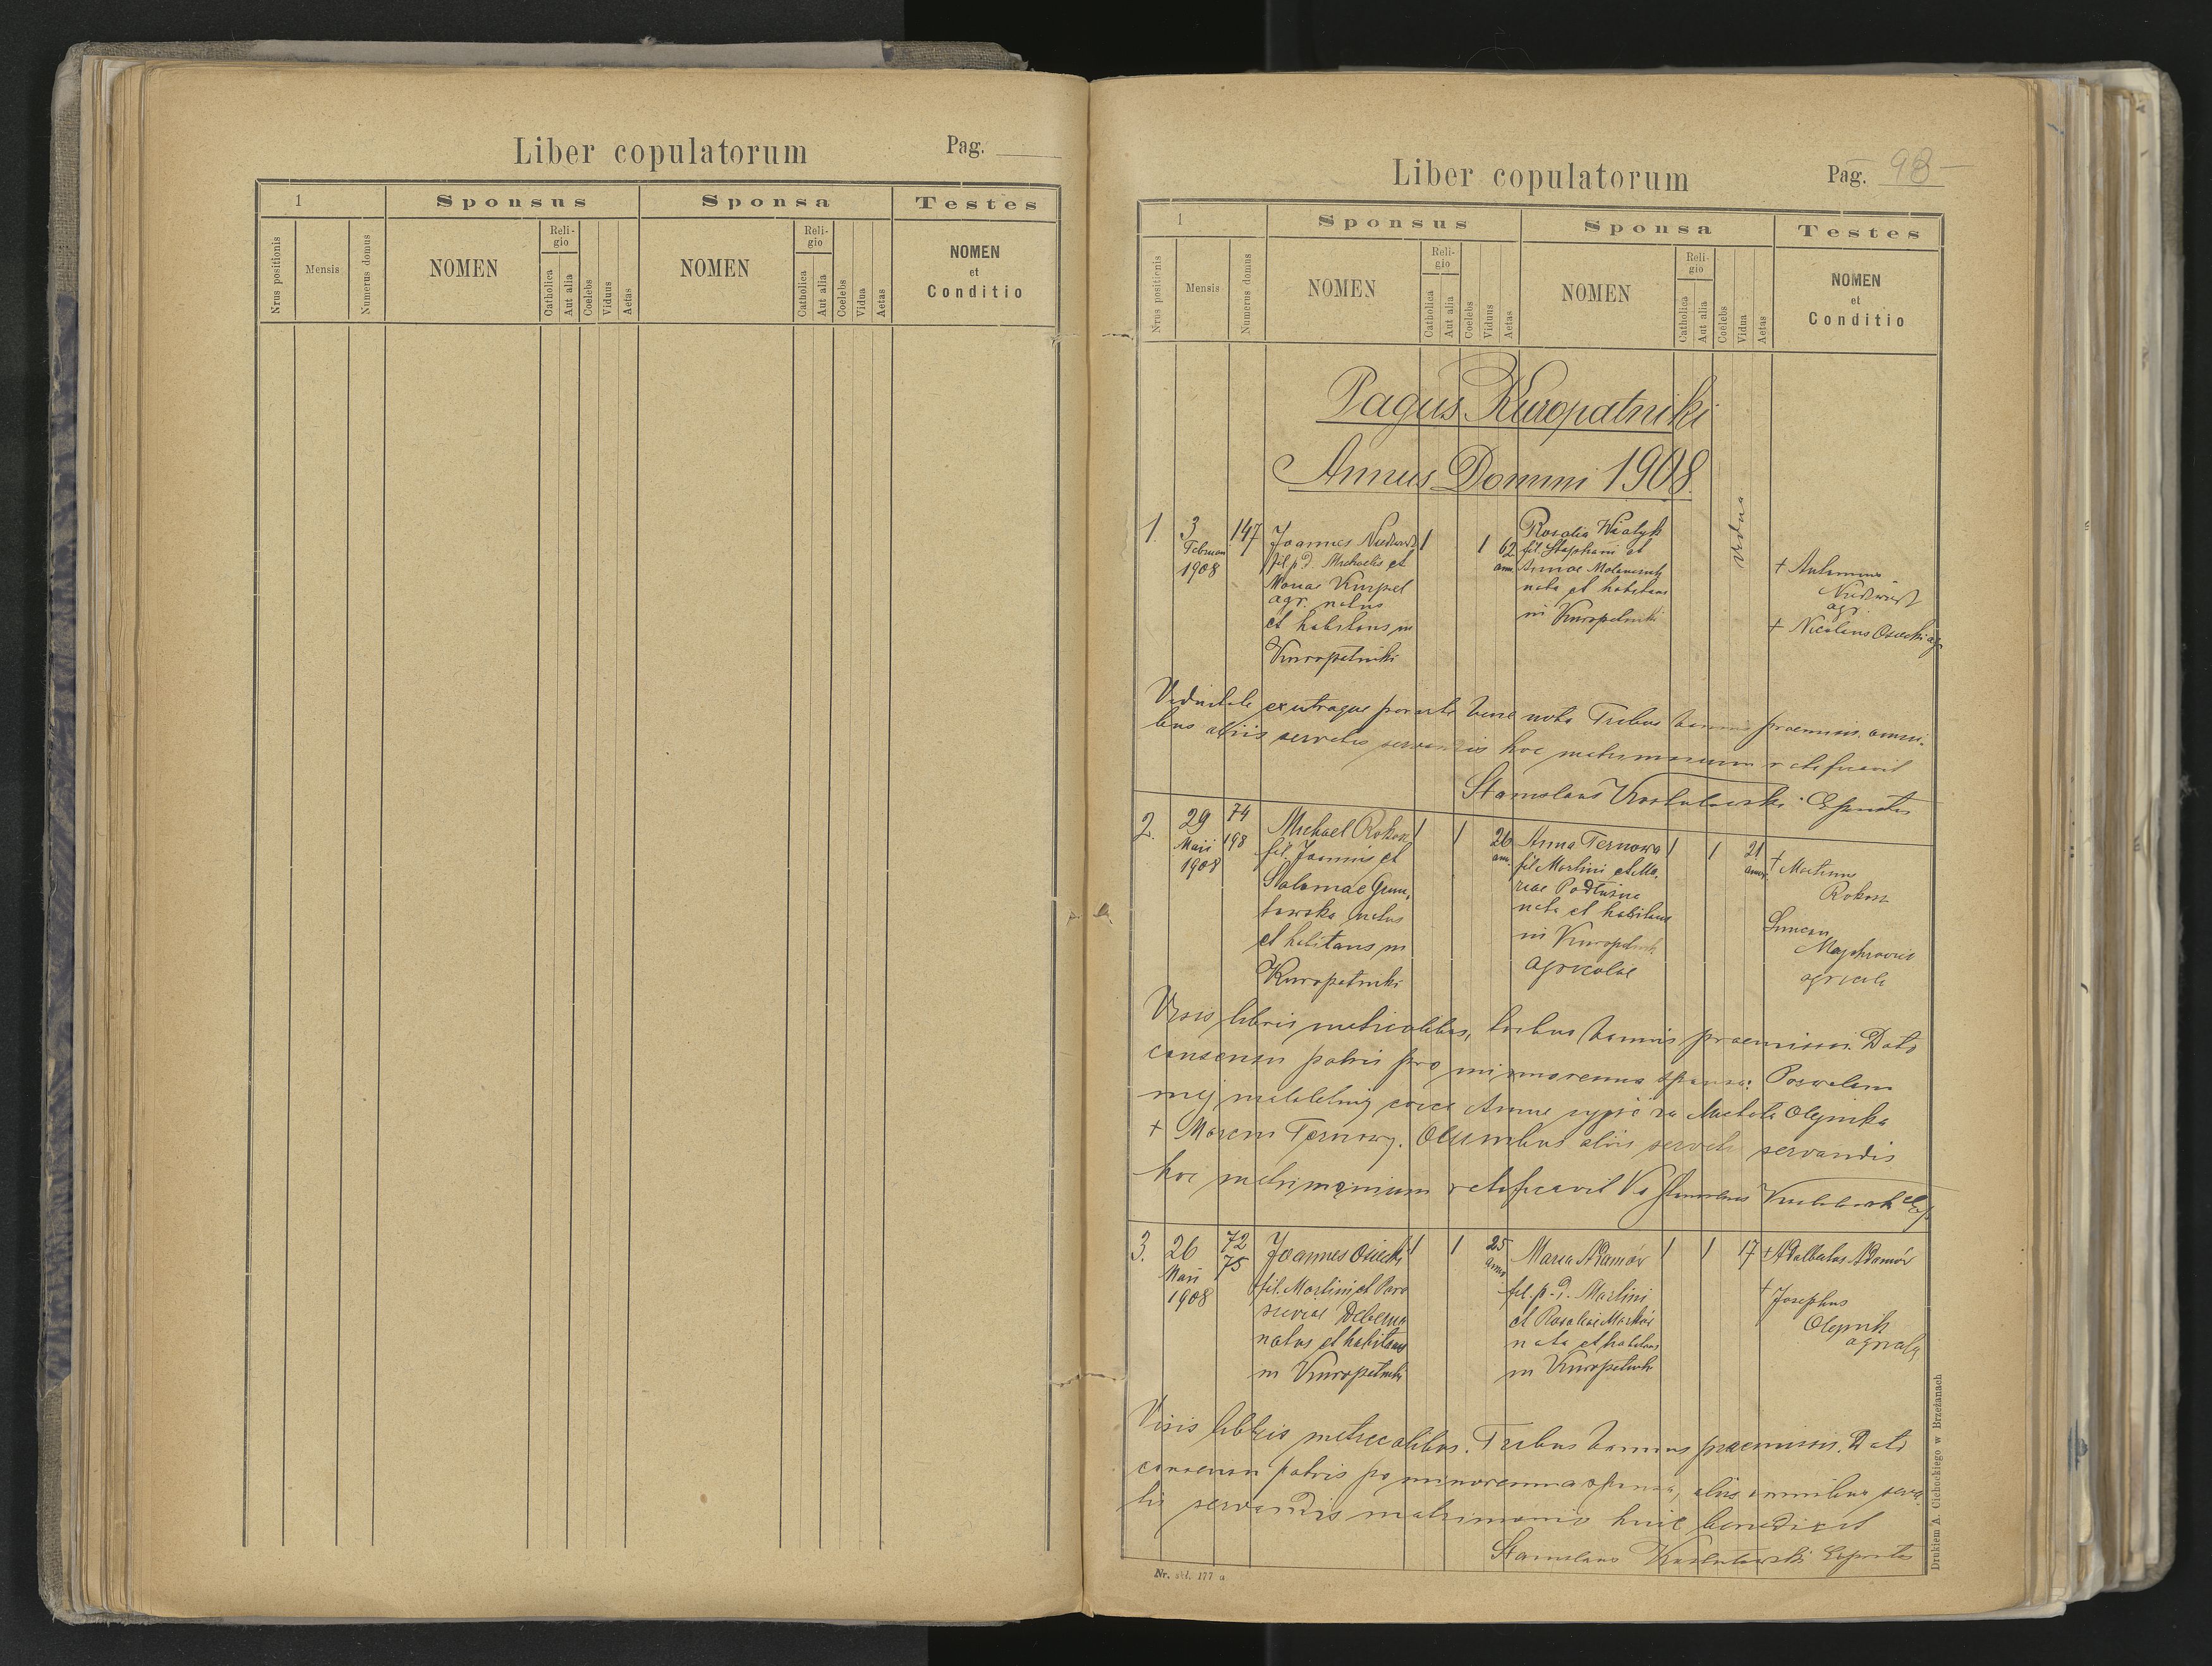 Liber copulatorum
Pag.
1
Sponsus
Sponsa
Testes
Nrus positionis
Mensis
Numerus domus
NOMEN
Religio
Catholica
Aut alia
Coelebs
Viduus
Aetas
NOMEN
Religio
Catholica
Aut alia
Coelebs
Vidua
Aetas
NOMEN
et
Conditio
Liber copulatorum
Pag. 98
1
Sponsus
Sponsa
Testes
Nrus positionis
Mensis
Numerus domus
NOMEN
Religio
Catholica
Aut alia
Coelebs
Viduus
Aetas
NOMEN
Religio
Catholica
Aut alia
Coelebs
Vidua
Aetas
NOMEN
et
Conditio
Pagus Kuropatniki
Annus Domini 1908.
1.
3
1908
147
Joannes
fil. p. d. Michaelis et
agr. natus
et habitans in
Kuropatniki
1
1
62
ann.
Rosalia
fil. Stephani et
Annae
nata et habitans
in Kuropatniki
vidua
+ Antonius
agr.
+ Nicolaus Osiecki agr
Viduitate ex utraque parte bene nota Tribus bannis praemissis omni-
bus aliis servatis servandis hoc matrimonium ratificavit
Stanislaus Expositus
2.
29
Maii
1908
74
198
Michael Rokosz
fil. Joannis et
Salomae
natus
et habitans in
Kuropatniki
1
1
26
ann.
Anna Ternowa
fil. Martini et Ma-
riae Podluzna
nata et habitans
in Kuropatniki
agricolae
1
1
21
annor.
+ Martinus
Rokosz
agricola
Visis libris metricalibus, tribus bannis praemissis. Dato
consensu patris pro minorenna sponsa: Pozwalam
mej małoletniej córce Annie wyjść za Michała Olejnika
+ Marcin Ternowy. Omnibus aliis servatis servandis
hoc matrimonium ratificavit Stanislaus
3.
26
Maii
1908
72
75
Joannes Osiecki
fil. Martini et Para
sceviae
natus et habitans
in Kuropatniki
1
1
25
anno
Maria Adamów
fil. p. d. Martini
et Rosaliae Marków
nata et habitans
in Kuropatniki
1
1
17
+ Adalbertus Adamów
+ Josephus
Olejnik
agricola
Visis libris metricalibus. Tribus bannis praemissis. Dato
consensu patris pro minorenna sponsa, aliis omnibus serva
tis servandis matrimonio huic benedixit
Stanislaus Expositus
Nr. skł. 177 a
Drukiem A. Cichockiego w Brzeżanach